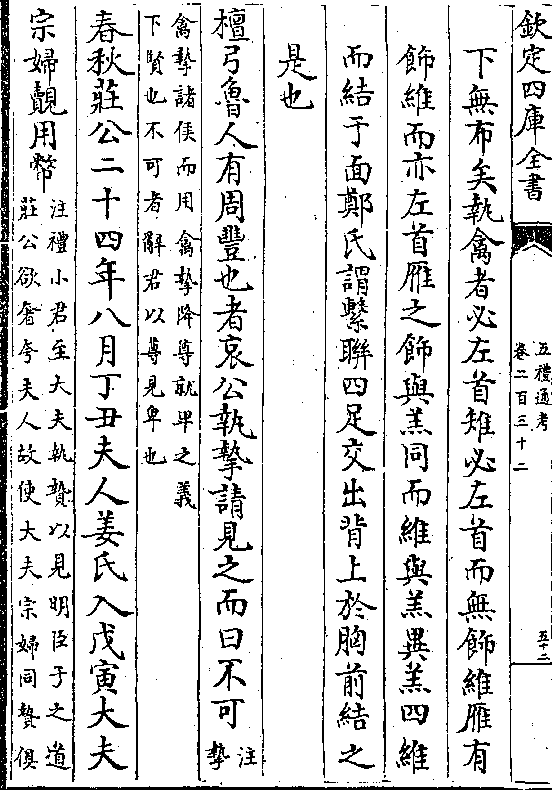 欽定四庫全書
五禮通考
卷二百三十二
五十二
下無布矣執禽者必左首雉必左首而無飾維雁有
飾維而亦左首雁之飾與羔同而維與羔異羔四維
而結于面鄭氏謂繫聯四足交出背上於胸前結之
是也
檀弓魯人有周豐也者哀公執摯請見之而曰不可
注摯
禽摯諸侯而用禽摯降尊就卑之義
下賢也不可者辭君以尊見卑也
春秋莊公二十四年八月丁丑夫人姜氏入戊寅大夫
宗婦覿用幣
注禮小君至大夫執贄以見明臣子之道
莊公欲奢夸夫人故使大夫宗婦同贄俱